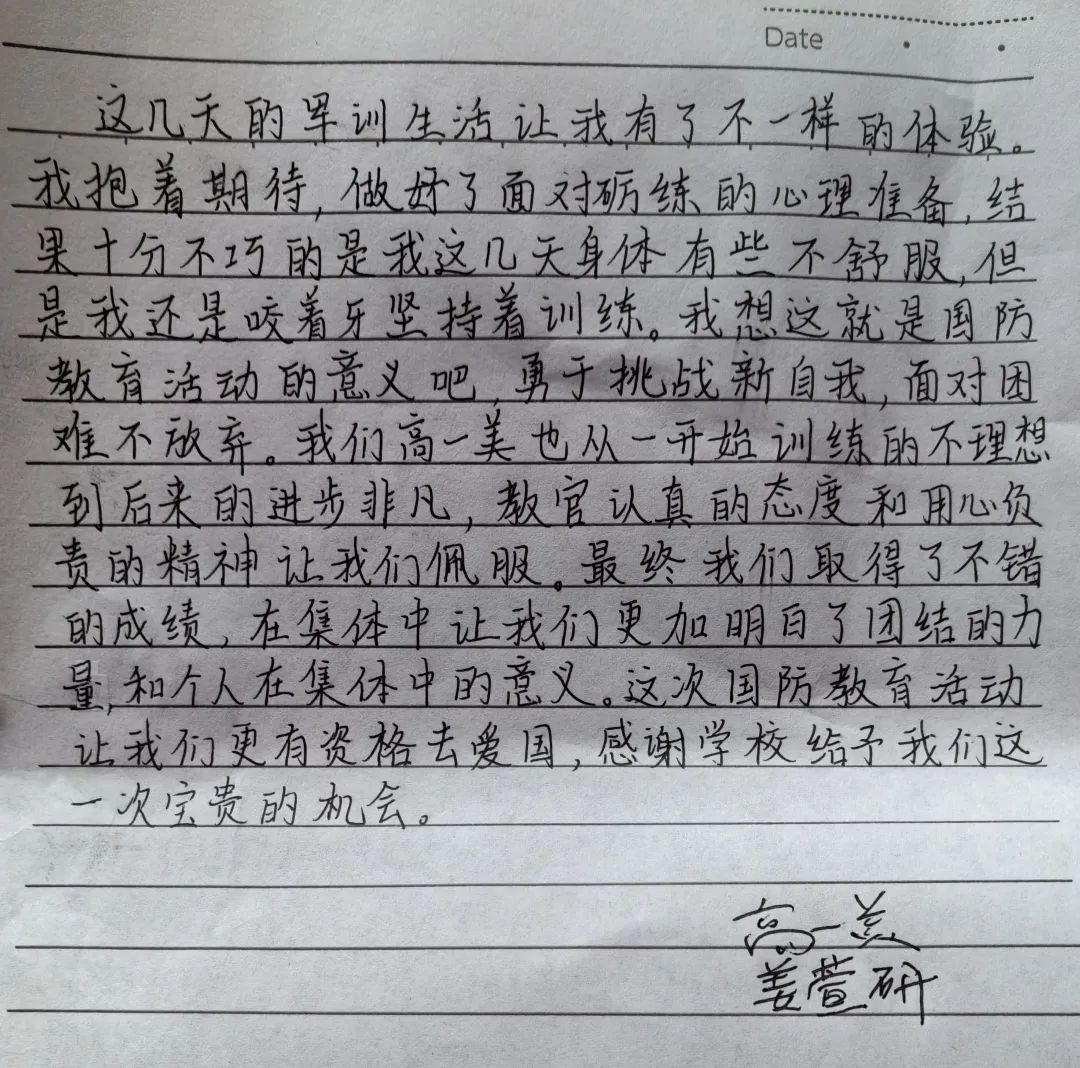 Date
这几天的军训生活让我有了不一样的体验。
我抱着期待,做好了面对砺练的心理准备,结
果十分不巧的是我这几天身体有些不舒服,但
是我还是咬着牙坚持着训练。我想这就是国防
教育活动的意义吧,勇于挑战新自我,面对困
难不放弃。我们高一美也从一开始训练的不理想
到后来的进步非凡,教官认真的态度和用心负
责的精神让我们佩服。最终我们取得了不错
的成绩,在集体中让我们更加明白了团结的力
量,和个人在集体中的意义。这次国防教育活动
让我们更有资格去爱国,感谢学校给予我们这
一次宝贵的机会。
高一美
姜萱研